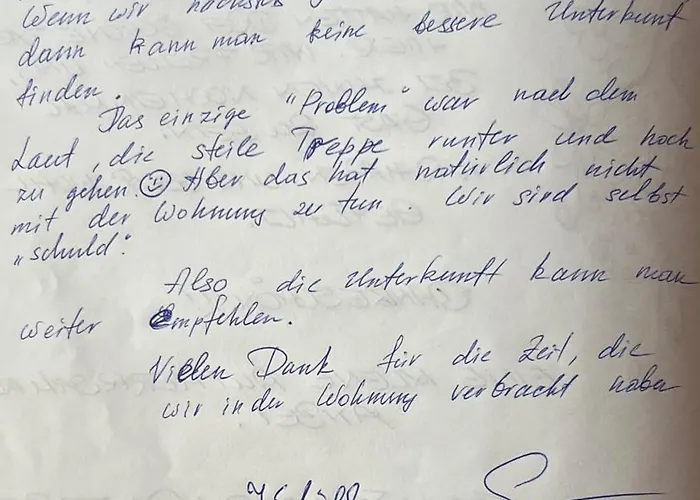 Wenn wir
dann kann man keine bessere Unterkunft
finden.
Das einzige "Problem" war nach dem
Lauf, die steile Treppe runter und hoch
zu gehen. ☺ Aber das hat natürlich nicht
mit der Wohnung zu tun. Wir sind selbst
"schuld".
Also die Unterkunft kann man
weiter Empfehlen.
Vielen Dank für die Zeit, die
wir in der Wohnung verbracht haben